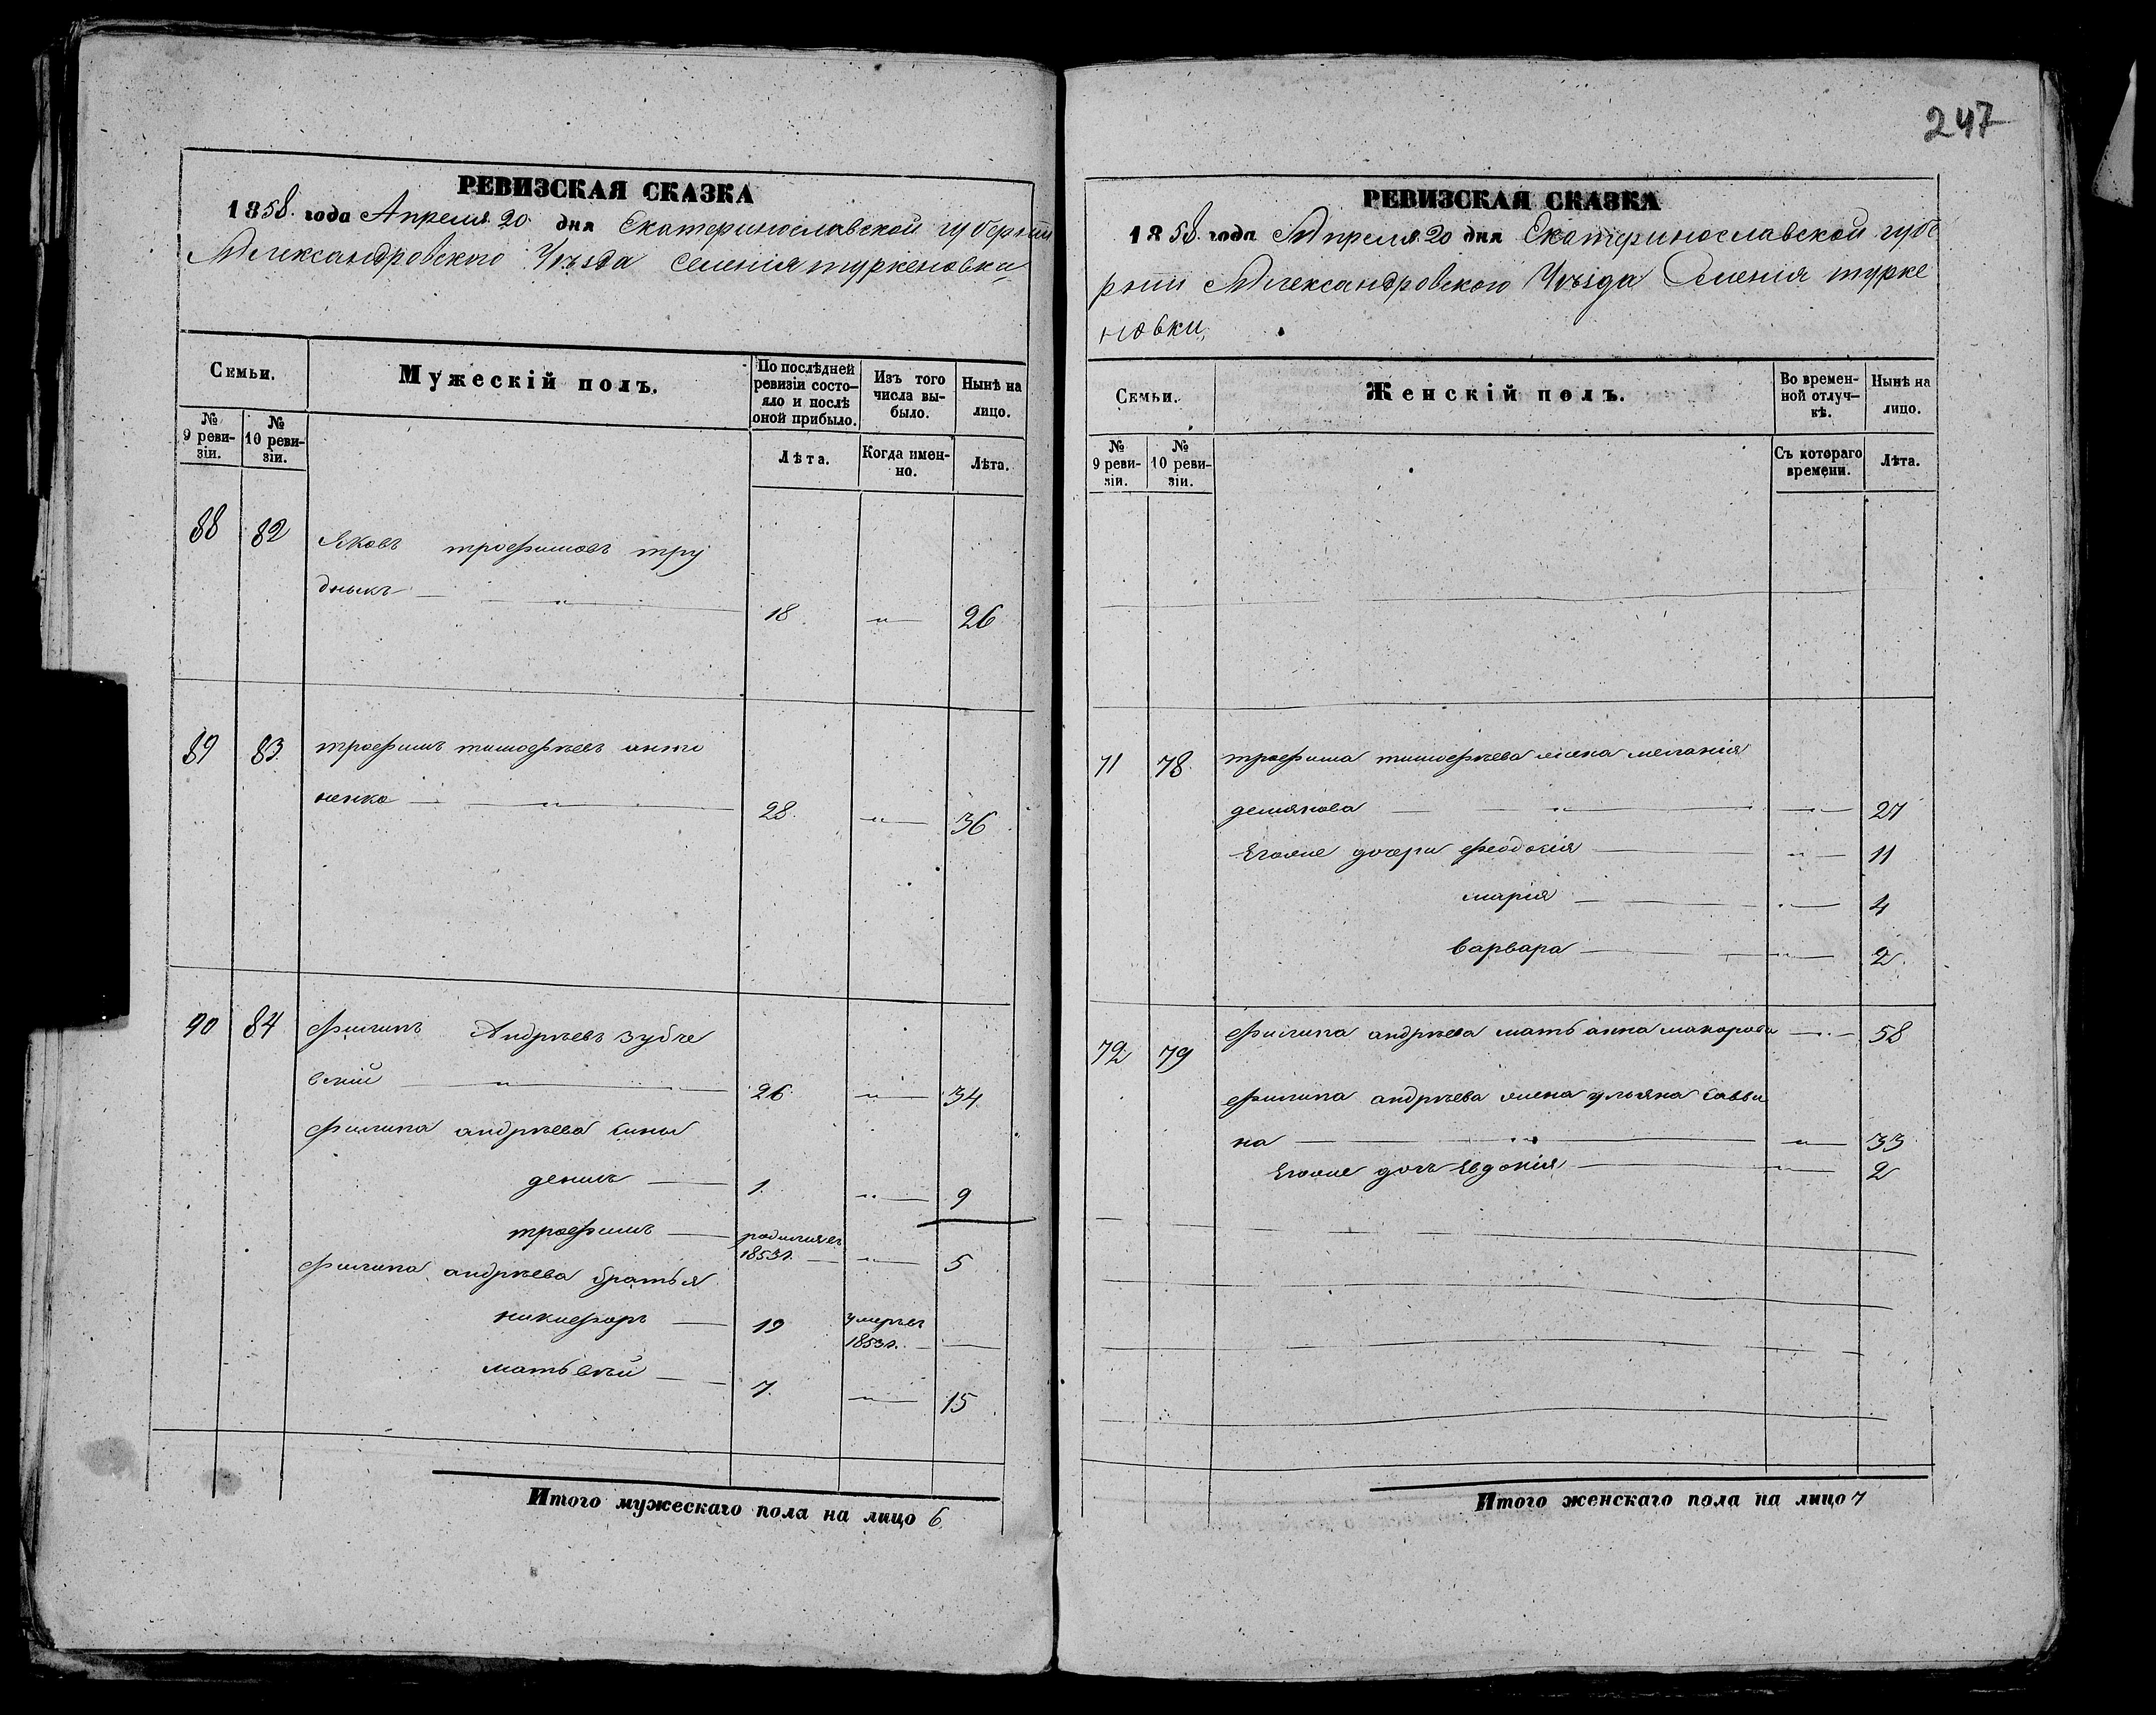 247
РЕВИЗСКАЯ СКАЗКА
1858 года Апреля 20 дня Екатеринославской губернии
Александровского Уѣзда Селенія туркеновки
Семьи.
Мужескій полъ.
По послѣдней ревизіи состояло и послѣ оной прибыло.
Изъ того числа выбыло.
Нынѣ на лицо.
№ 9 ревизіи.
№ 10 ревизіи.
Лѣта.
Когда именно.
Лѣта.
88 82 Яковъ трофимовъ тру
дныкъ — „ — 18 — „ — 26
89 83 трофимъ тимофѣевъ анто
ненко — „ — 28 — „ — 36
90 84 филипъ Андрѣевъ зубче
вский — „ — 26 — „ — 34
филипа андрѣева сины
денисъ — 1. — „ — 9
трофимъ — родился въ 1853г. — „ — 5
филипа андрѣева братья
никифоръ — 19 умеръ въ 1853г. —
матьвѣй — 7. — „ — 15
Итого мужескаго пола на лицо 6
РЕВИЗСКАЯ СКАЗКА
1858 года Апреля 20 дня Екатеринославской губе
рнии Александровского Уѣзда Селенія турке
новки
Семьи.
Женскій полъ.
Во временной отлучкѣ.
Нынѣ на лицо.
№ 9 ревизіи.
№ 10 ревизіи.
Съ котораго времени.
Лѣта.
71 78 трофима тимофѣева жена меланія
демянова — „ — — „ — 27
Егоже дочери феодосія — — „ — 11
марія — — „ — 4
варвара — — „ — 2
72 79 филипа андрѣева мать анна макарова — „ — 58
филипа андрѣева жена ульяна савви
на — „ — — „ — 33
Егоже дочь Евдокія — — „ — 2
Итого женскаго пола на лицо 7